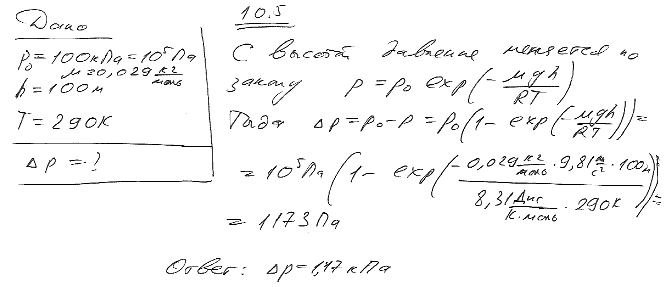 Дано
p₀ = 100кПа = 10⁵Па
μ = 0,029 кг/моль
h = 100м
T = 290K
Δp = ?
10.5
С высотой давление меняется по
закону p = p₀ exp(-μgh/RT)
Тогда Δp = p₀ - p = p₀(1 - exp(-μgh/RT)) =
= 10⁵Па (1 - exp(-0,029 кг/моль · 9,81 м/с² · 100м / 8,31 Дж/К·моль · 290К)) =
= 1173 Па
Ответ: Δp = 1,17 кПа